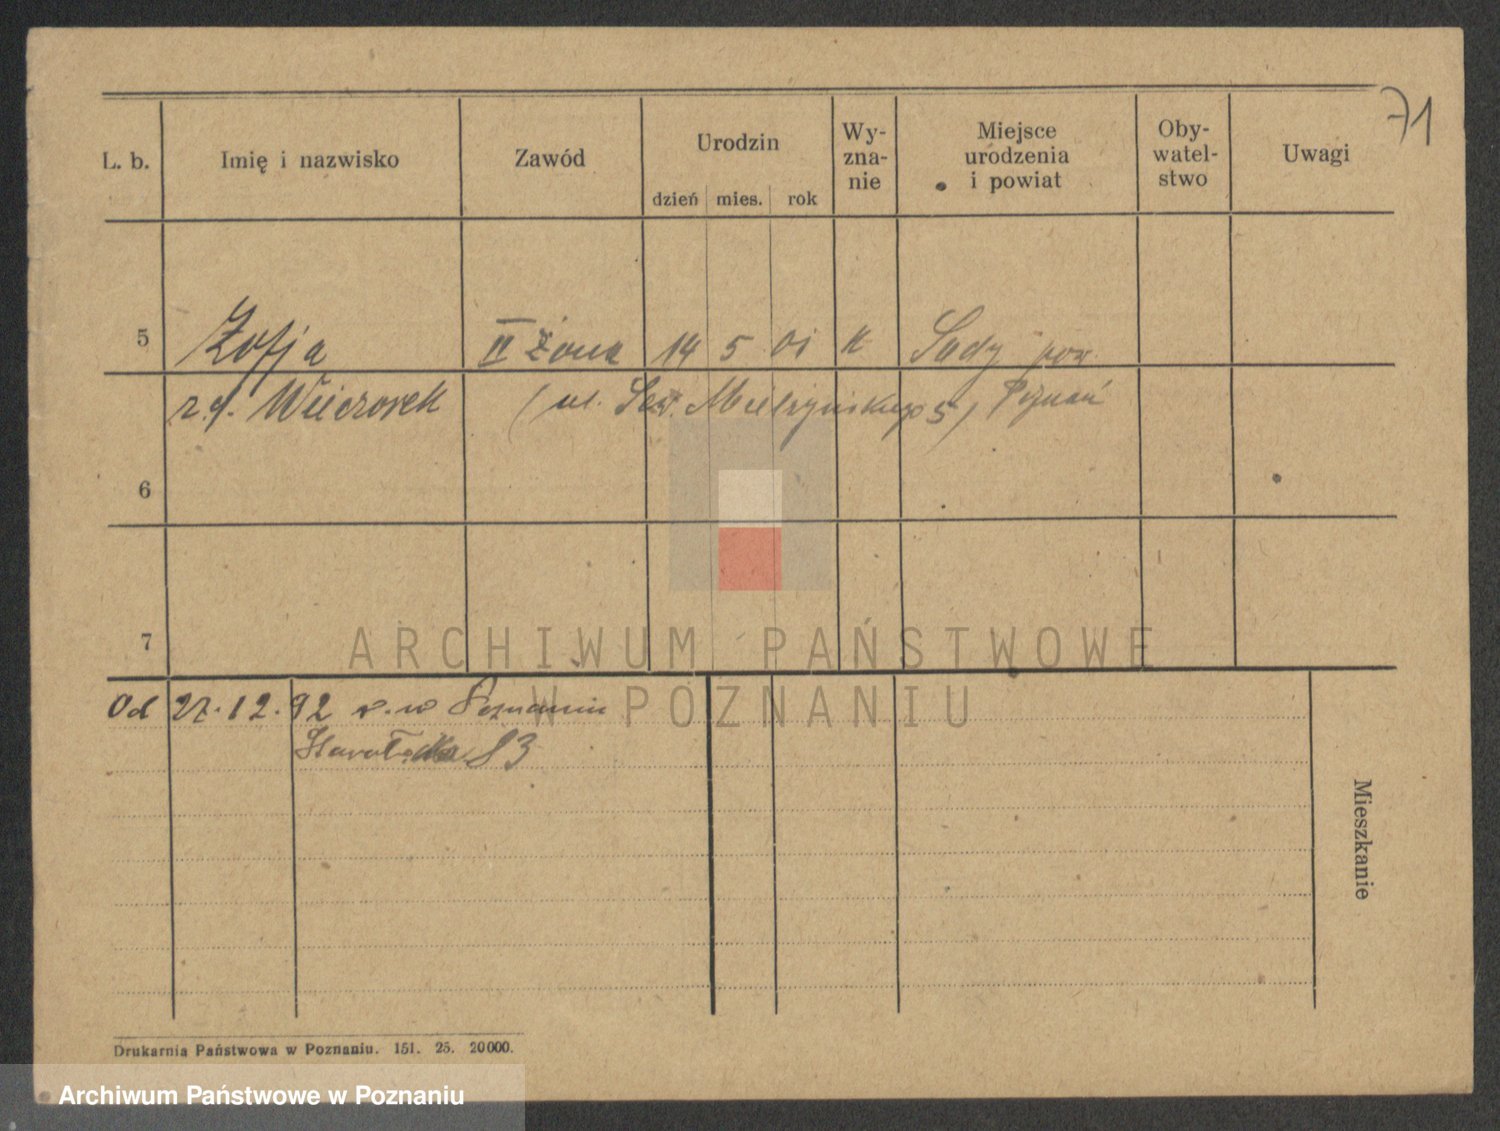 71
L. b. Imię i nazwisko Zawód Urodzin Wy-
zna-
nie Miejsce
urodzenia
i powiat Oby-
watel-
stwo Uwagi
dzień mies. rok
5 Zofja II żona 14 5 01 k Sady pow.
z d. Wieczorek (ul. Sew. Mielżyńskiego 5) Poznań
6
7
ARCHIWUM PAŃSTWOWE
W POZNANIU
Od 27.12.92 w Poznaniu
83
Mieszkanie
Drukarnia Państwowa w Poznaniu. 151. 25. 20000.
Archiwum Państwowe w Poznaniu